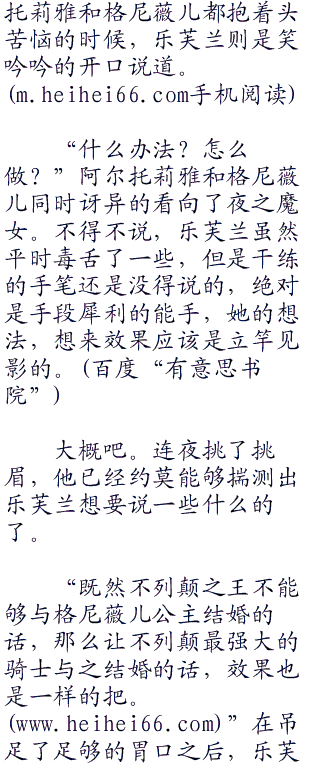 托莉雅和格尼薇儿都抱着头
苦恼的时候，乐芙兰则是笑
吟吟的开口说道。
(m.heihei66.com手机阅读)
“什么办法？怎么
做？”阿尔托莉雅和格尼薇
儿同时讶异的看向了夜之魔
女。不得不说，乐芙兰虽然
平时毒舌了一些，但是干练
的手笔还是没得说的，绝对
是手段犀利的能手，她的想
法，想来效果应该是立竿见
影的。(百度“有意思书
院”)
大概吧。连夜挑了挑
眉，他已经约莫能够揣测出
乐芙兰想要说一些什么的
了。
“既然不列颠之王不能
够与格尼薇儿公主结婚的
话，那么让不列颠最强大的
骑士与之结婚的话，效果也
是一样的把。
(www.heihei66.com)”在吊
足了足够的胃口之后，乐芙